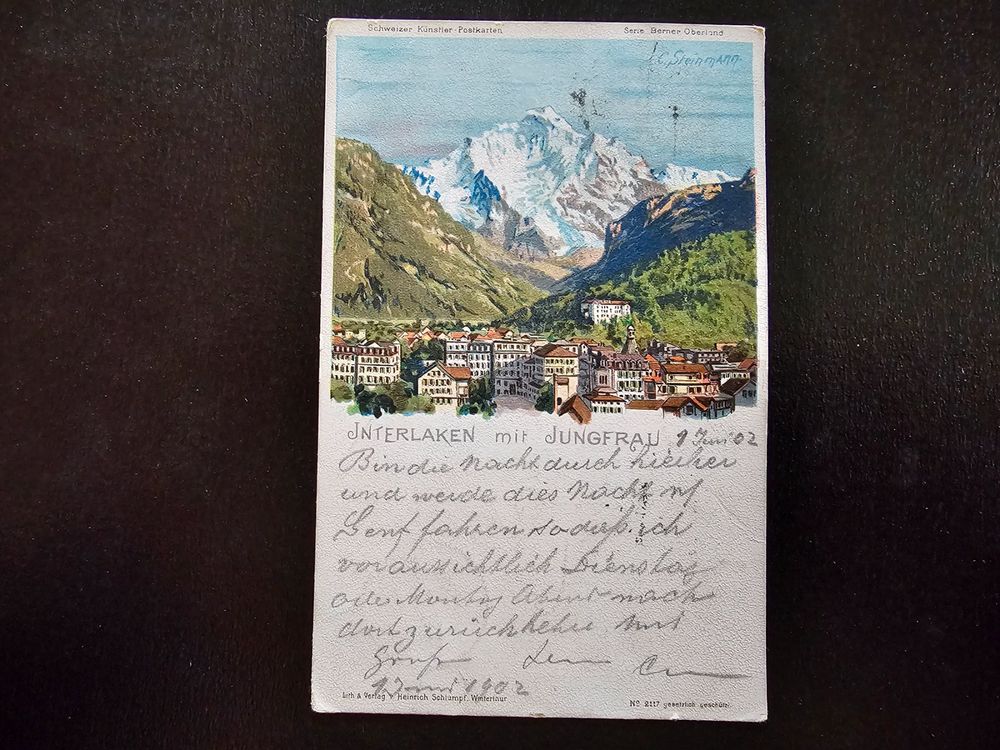 Schweizer Künstler-Postkarten
Serie Berner Oberland
C. Steinmann.
JNTERLAKEN mit JUNGFRAU
1 Juni 02
Bin die Nacht durch hierher
und werde dies Nacht nf
Genf fahren so daß ich
voraussichtlich Dienstag
oder Montag Abend nach
dort zurückkehre mit
Gruß
1 Juni 1902
Lith & Verlag v Heinrich Schlumpf, Winterthur
No 2117 gesetzlich geschützt.